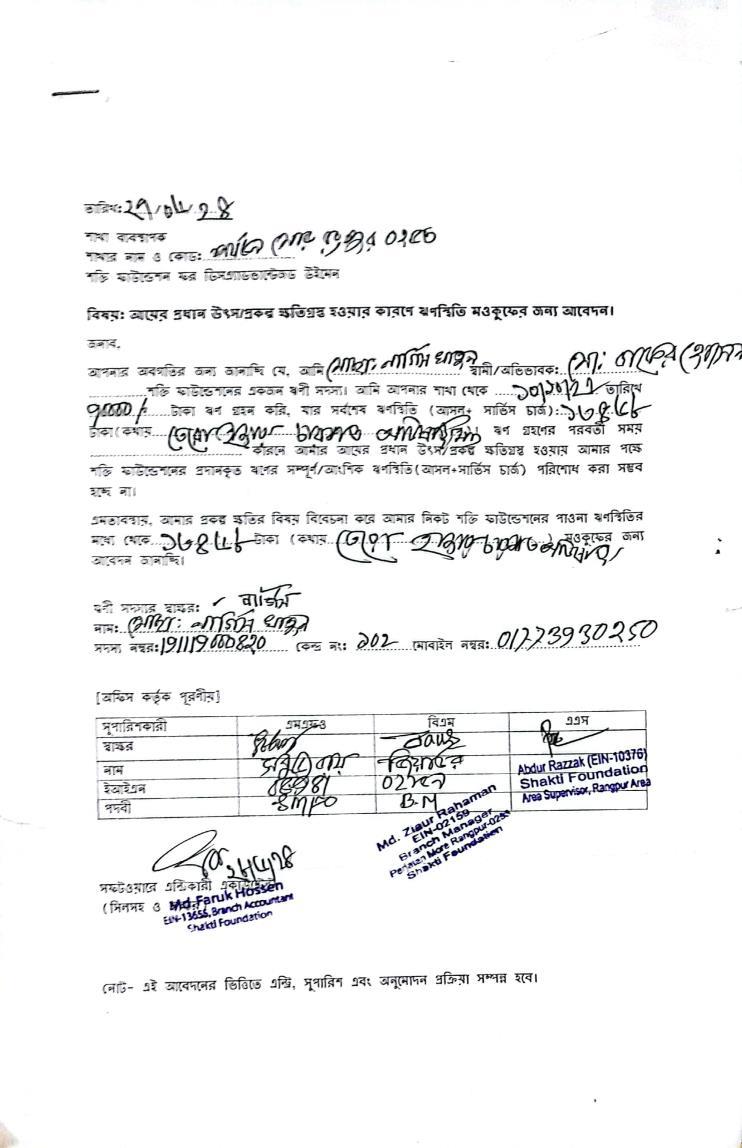 তারিখ: ২৭/০৮/২৪
শাখা ব্যবস্থাপক
শাখার নাম ও কোড: মোড় রংপুর
শক্তি ফাউন্ডেশন ফর ডিসএ্যাডভান্টেজড উইমেন
বিষয়: আয়ের প্রধান উৎস/প্রকল্প ক্ষতিগ্রস্ত হওয়ার কারণে ঋণস্থিতি মওকুফের জন্য আবেদন।
জনাব,
আপনার অবগতির জন্য জানাচ্ছি যে, আমি মোছা: নার্গিস খাতুন স্বামী/অভিভাবক: মো:
শক্তি ফাউন্ডেশনের একজন ঋণী সদস্য। আমি আপনার শাখা থেকে ১০/১০/২১ তারিখে
টাকা ঋণ গ্রহন করি, যার সর্বশেষ ঋণস্থিতি (আসল+ সার্ভিস চার্জ): ১৩৪৮৮
টাকা (কথায় তেরো হাজার চারশত অষ্টাশি) ঋণ গ্রহণের পরবর্তী সময়
কারনে আমার আয়ের প্রধান উৎস/প্রকল্প ক্ষতিগ্রস্ত হওয়ায় আমার পক্ষে
শক্তি ফাউন্ডেশনের প্রদানকৃত ঋণের সম্পূর্ণ/আংশিক ঋণস্থিতি(আসল+সার্ভিস চার্জ) পরিশোধ করা সম্ভব
হচ্ছে না।
এমতাবস্থায়, আমার প্রকল্প ক্ষতির বিষয় বিবেচনা করে আমার নিকট শক্তি ফাউন্ডেশনের পাওনা ঋণস্থিতির
মধ্যে থেকে ১৩৪৮৮ টাকা (কথায় তেরো হাজার চারশত অষ্টাশি) মওকুফের জন্য
আবেদন জানাচ্ছি।
ঋণী সদস্যর স্বাক্ষর: নার্গিস
নাম: মোছা: নার্গিস খাতুন
সদস্য নম্বর: 191119000820 কেন্দ্র নং: ১০২ মোবাইল নম্বর: 01773930250
[অফিস কর্তৃক পূরণীয়]
সুপারিশকারী এমএফও বিএম এএস
স্বাক্ষর
নাম জিয়াউর
ইআইএন
পদবী B.M
Abdur Razzak (EIN-10376)
Shakti Foundation
Area Supervisor, Rangpur Area
Md. Ziaur Rahaman
EIN-02159
Branch Manager
Shakti Foundation
সফটওয়ারে এন্ট্রিকারী একাউন্টেন্ট
(সিলসহ ও
Md. Faruk Hossen
EIN-13655, Branch Accountant
Shakti Foundation
নোট- এই আবেদনের ভিত্তিতে এন্ট্রি, সুপারিশ এবং অনুমোদন প্রক্রিয়া সম্পন্ন হবে।